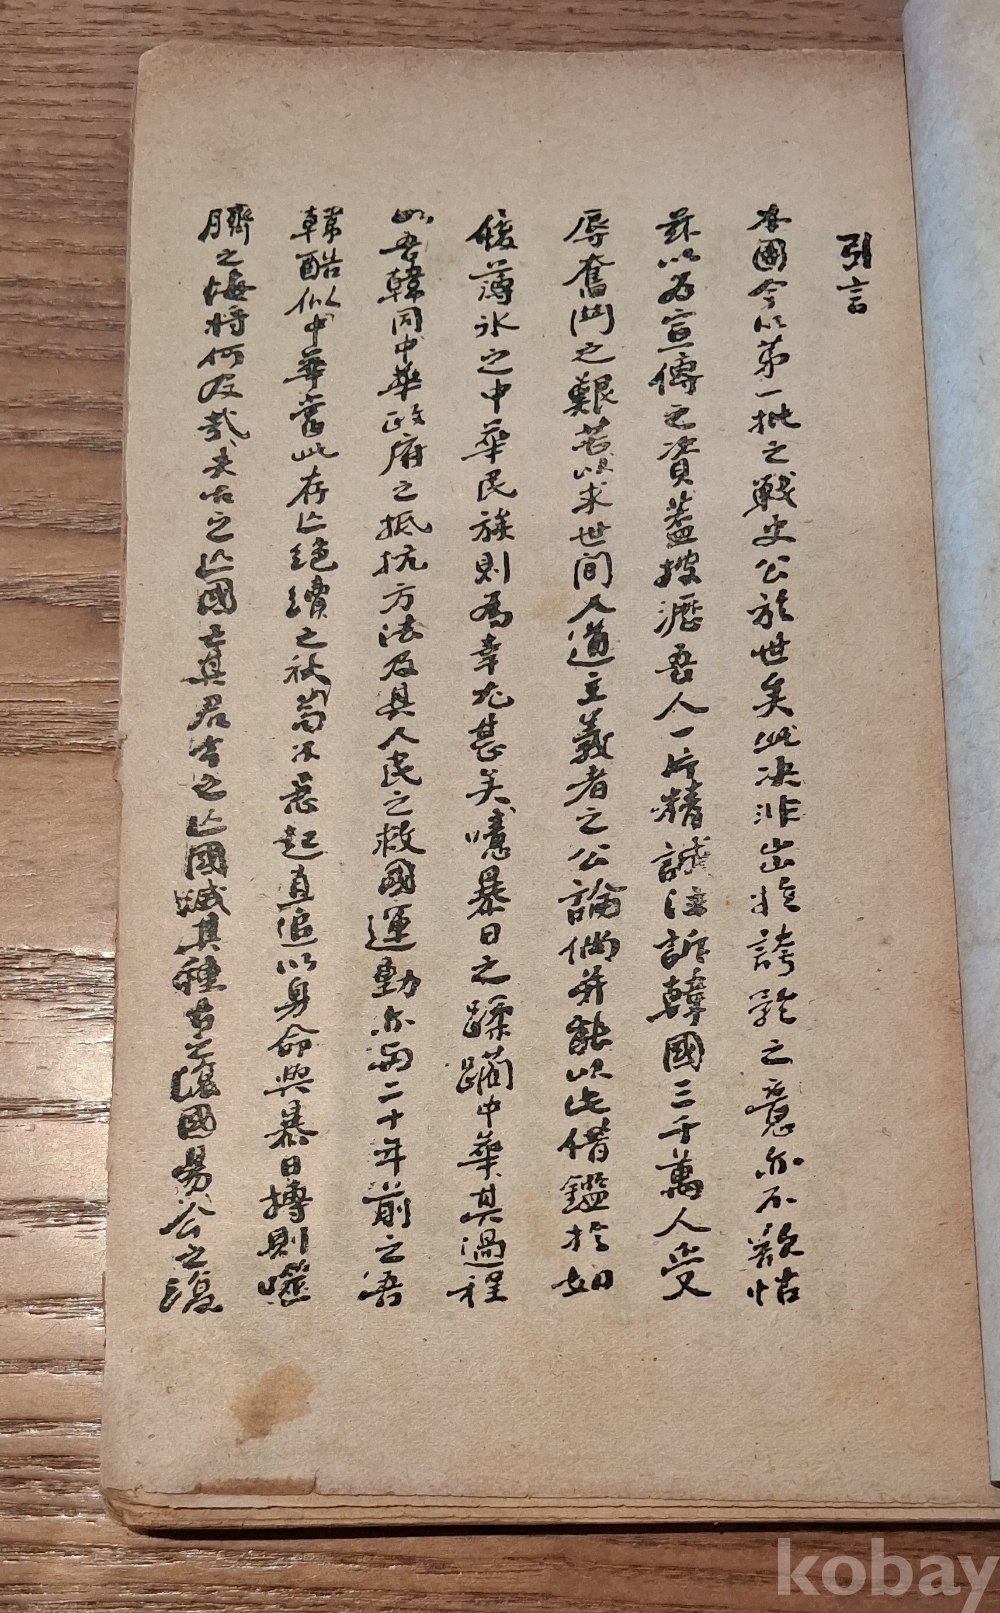 引言
本團今以第一批之戰史公於世矣此決非出於誇矜之意亦不欲怙
玆以為宣傳之資蓋披瀝吾人一片精誠泣訴韓國三千萬人受
辱奮鬥之艱苦以求世間人道主義者之公論倘并能以此借鑑於如
履薄氷之中華民族則為幸尤甚矣噫暴日之蹂躪中華其過程
如吾韓同中華政府之抵抗方法及其人民之救國運動亦與二十年前之吾
韓酷似中華當此存亡絕續之秋苟不急起直追以身命與暴日搏則噬
臍之悔將何及哉夫古之亡國亡其君今之亡國滅其種古之復國易今之復
kobay